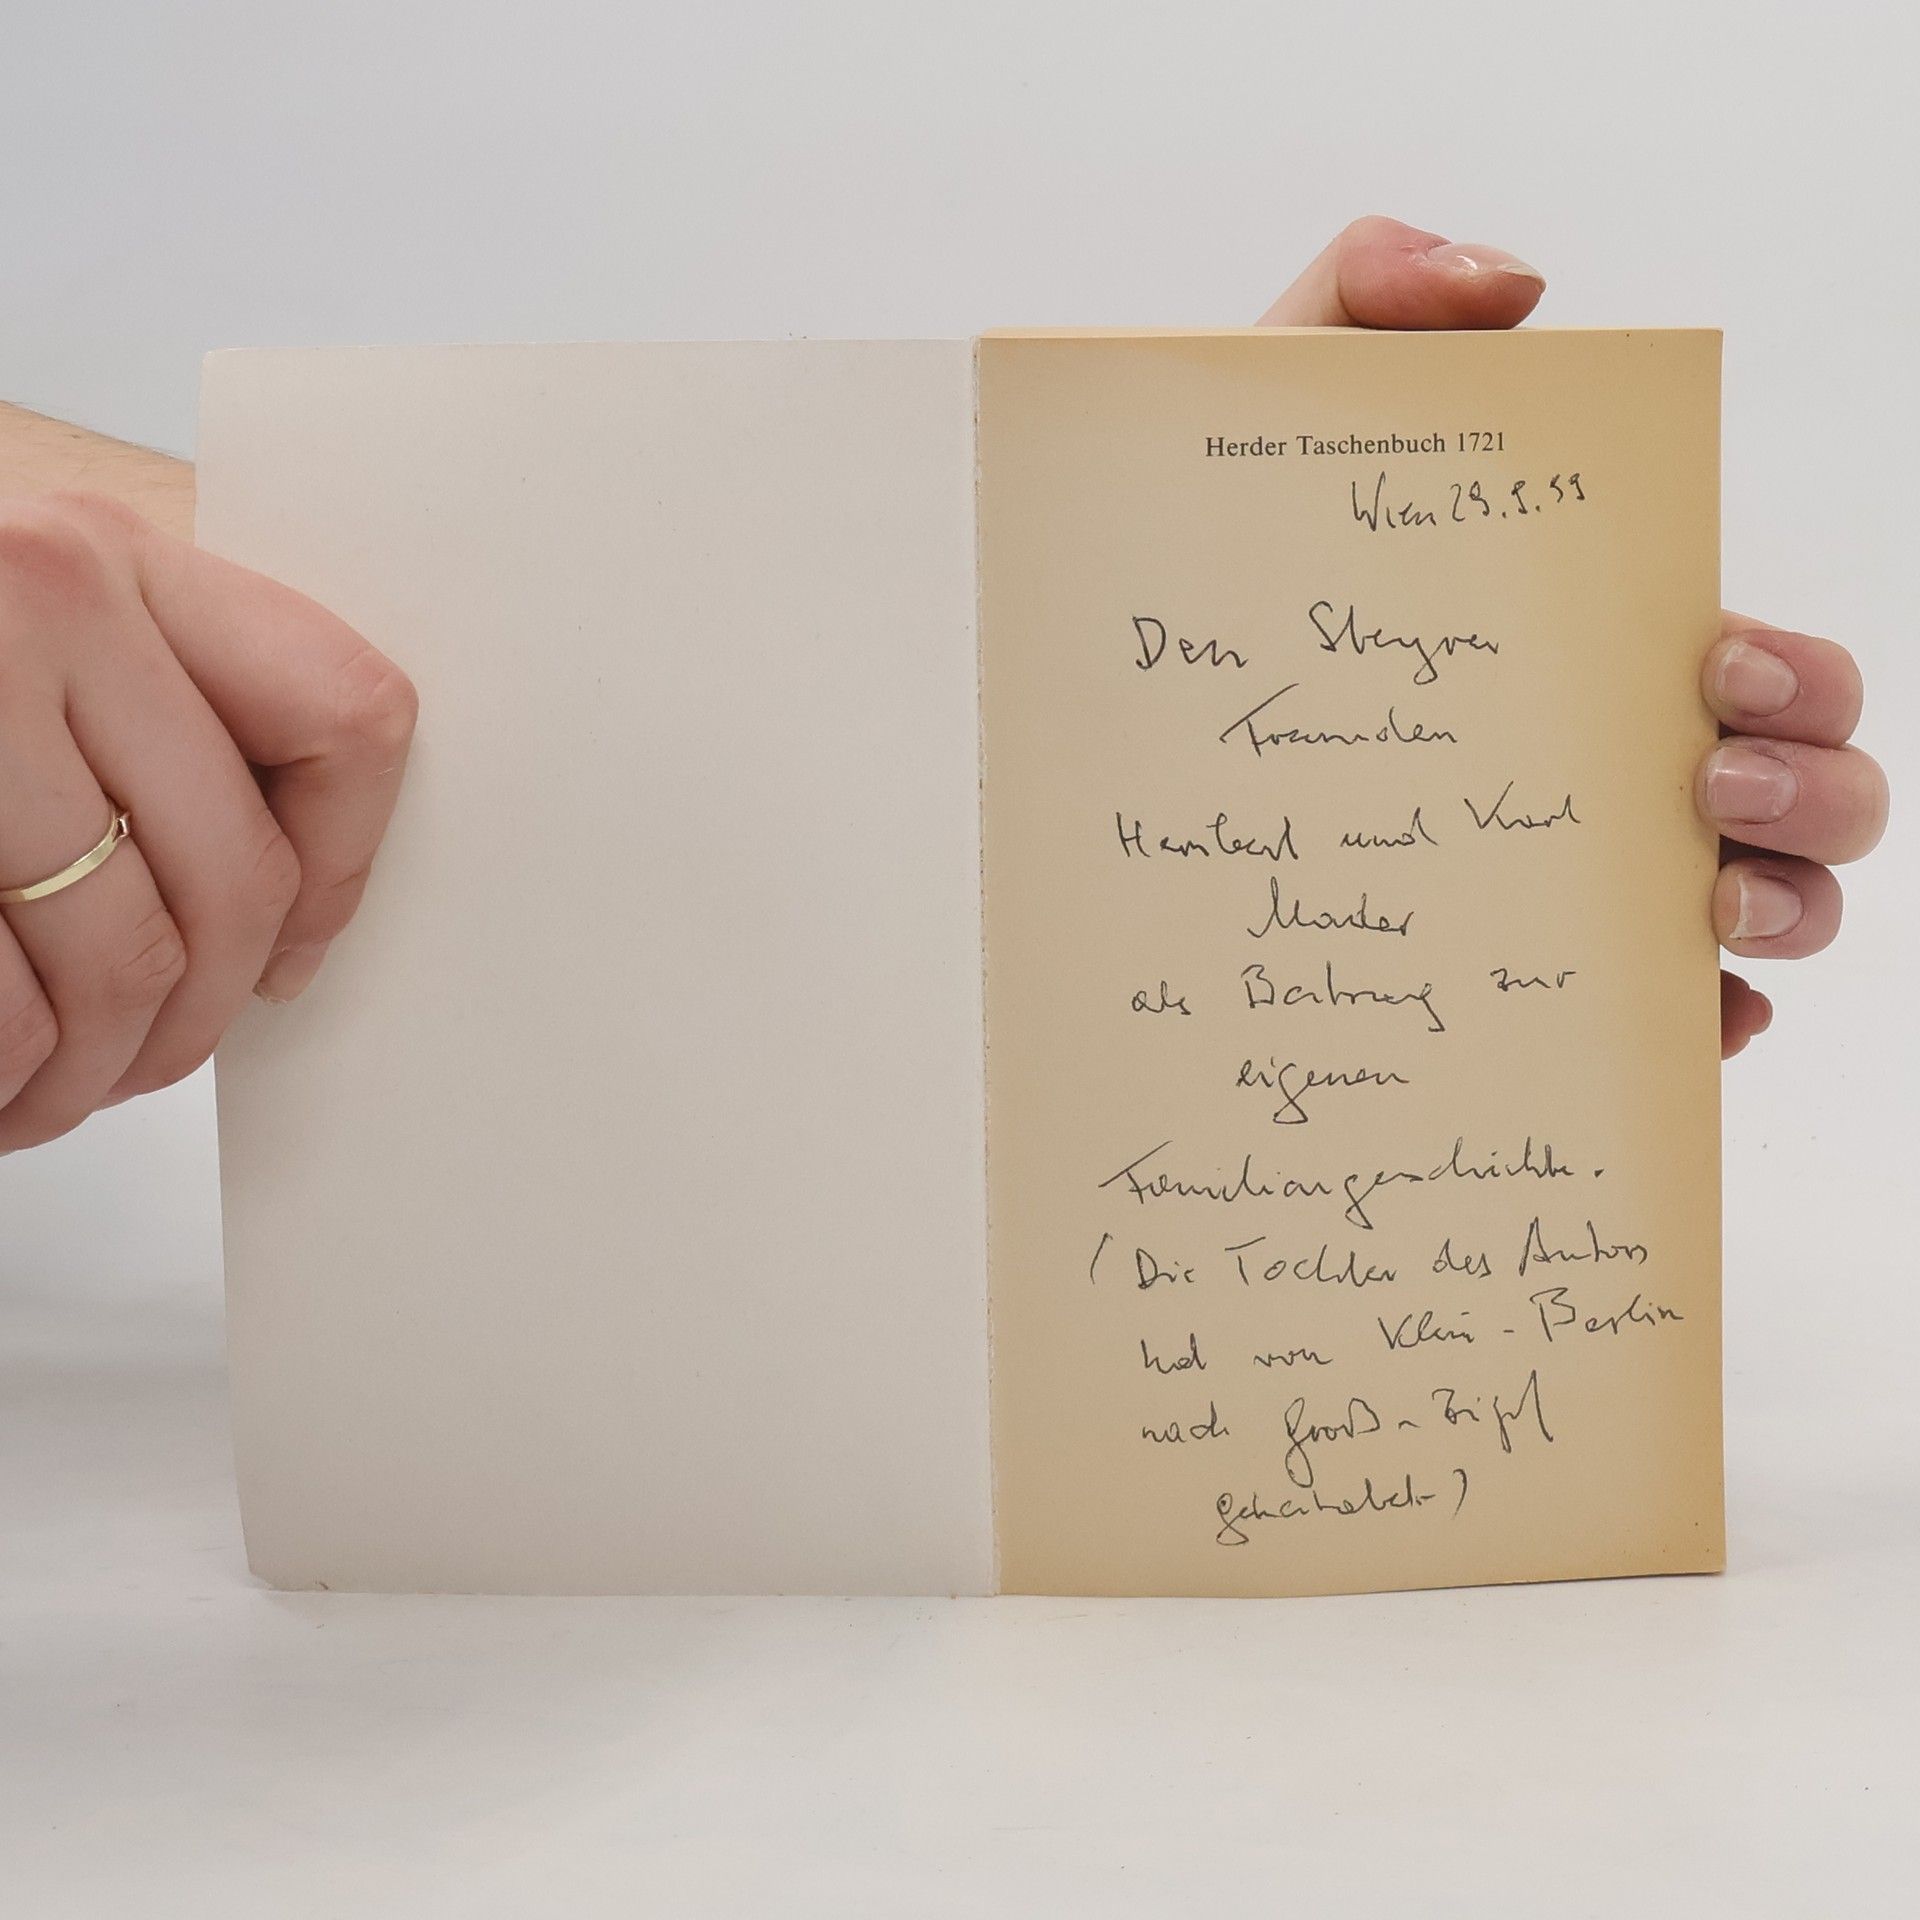 Herder Taschenbuch 1721
Wien 29.9.99
Den Steyrer
Freunden
Herbert und Karl
Mader
als Beitrag zur
eigenen
Familiengeschichte.
(Die Tochter des Autors
hat von Klein-Berlin
nach Groß-Zipf
geheiratet)